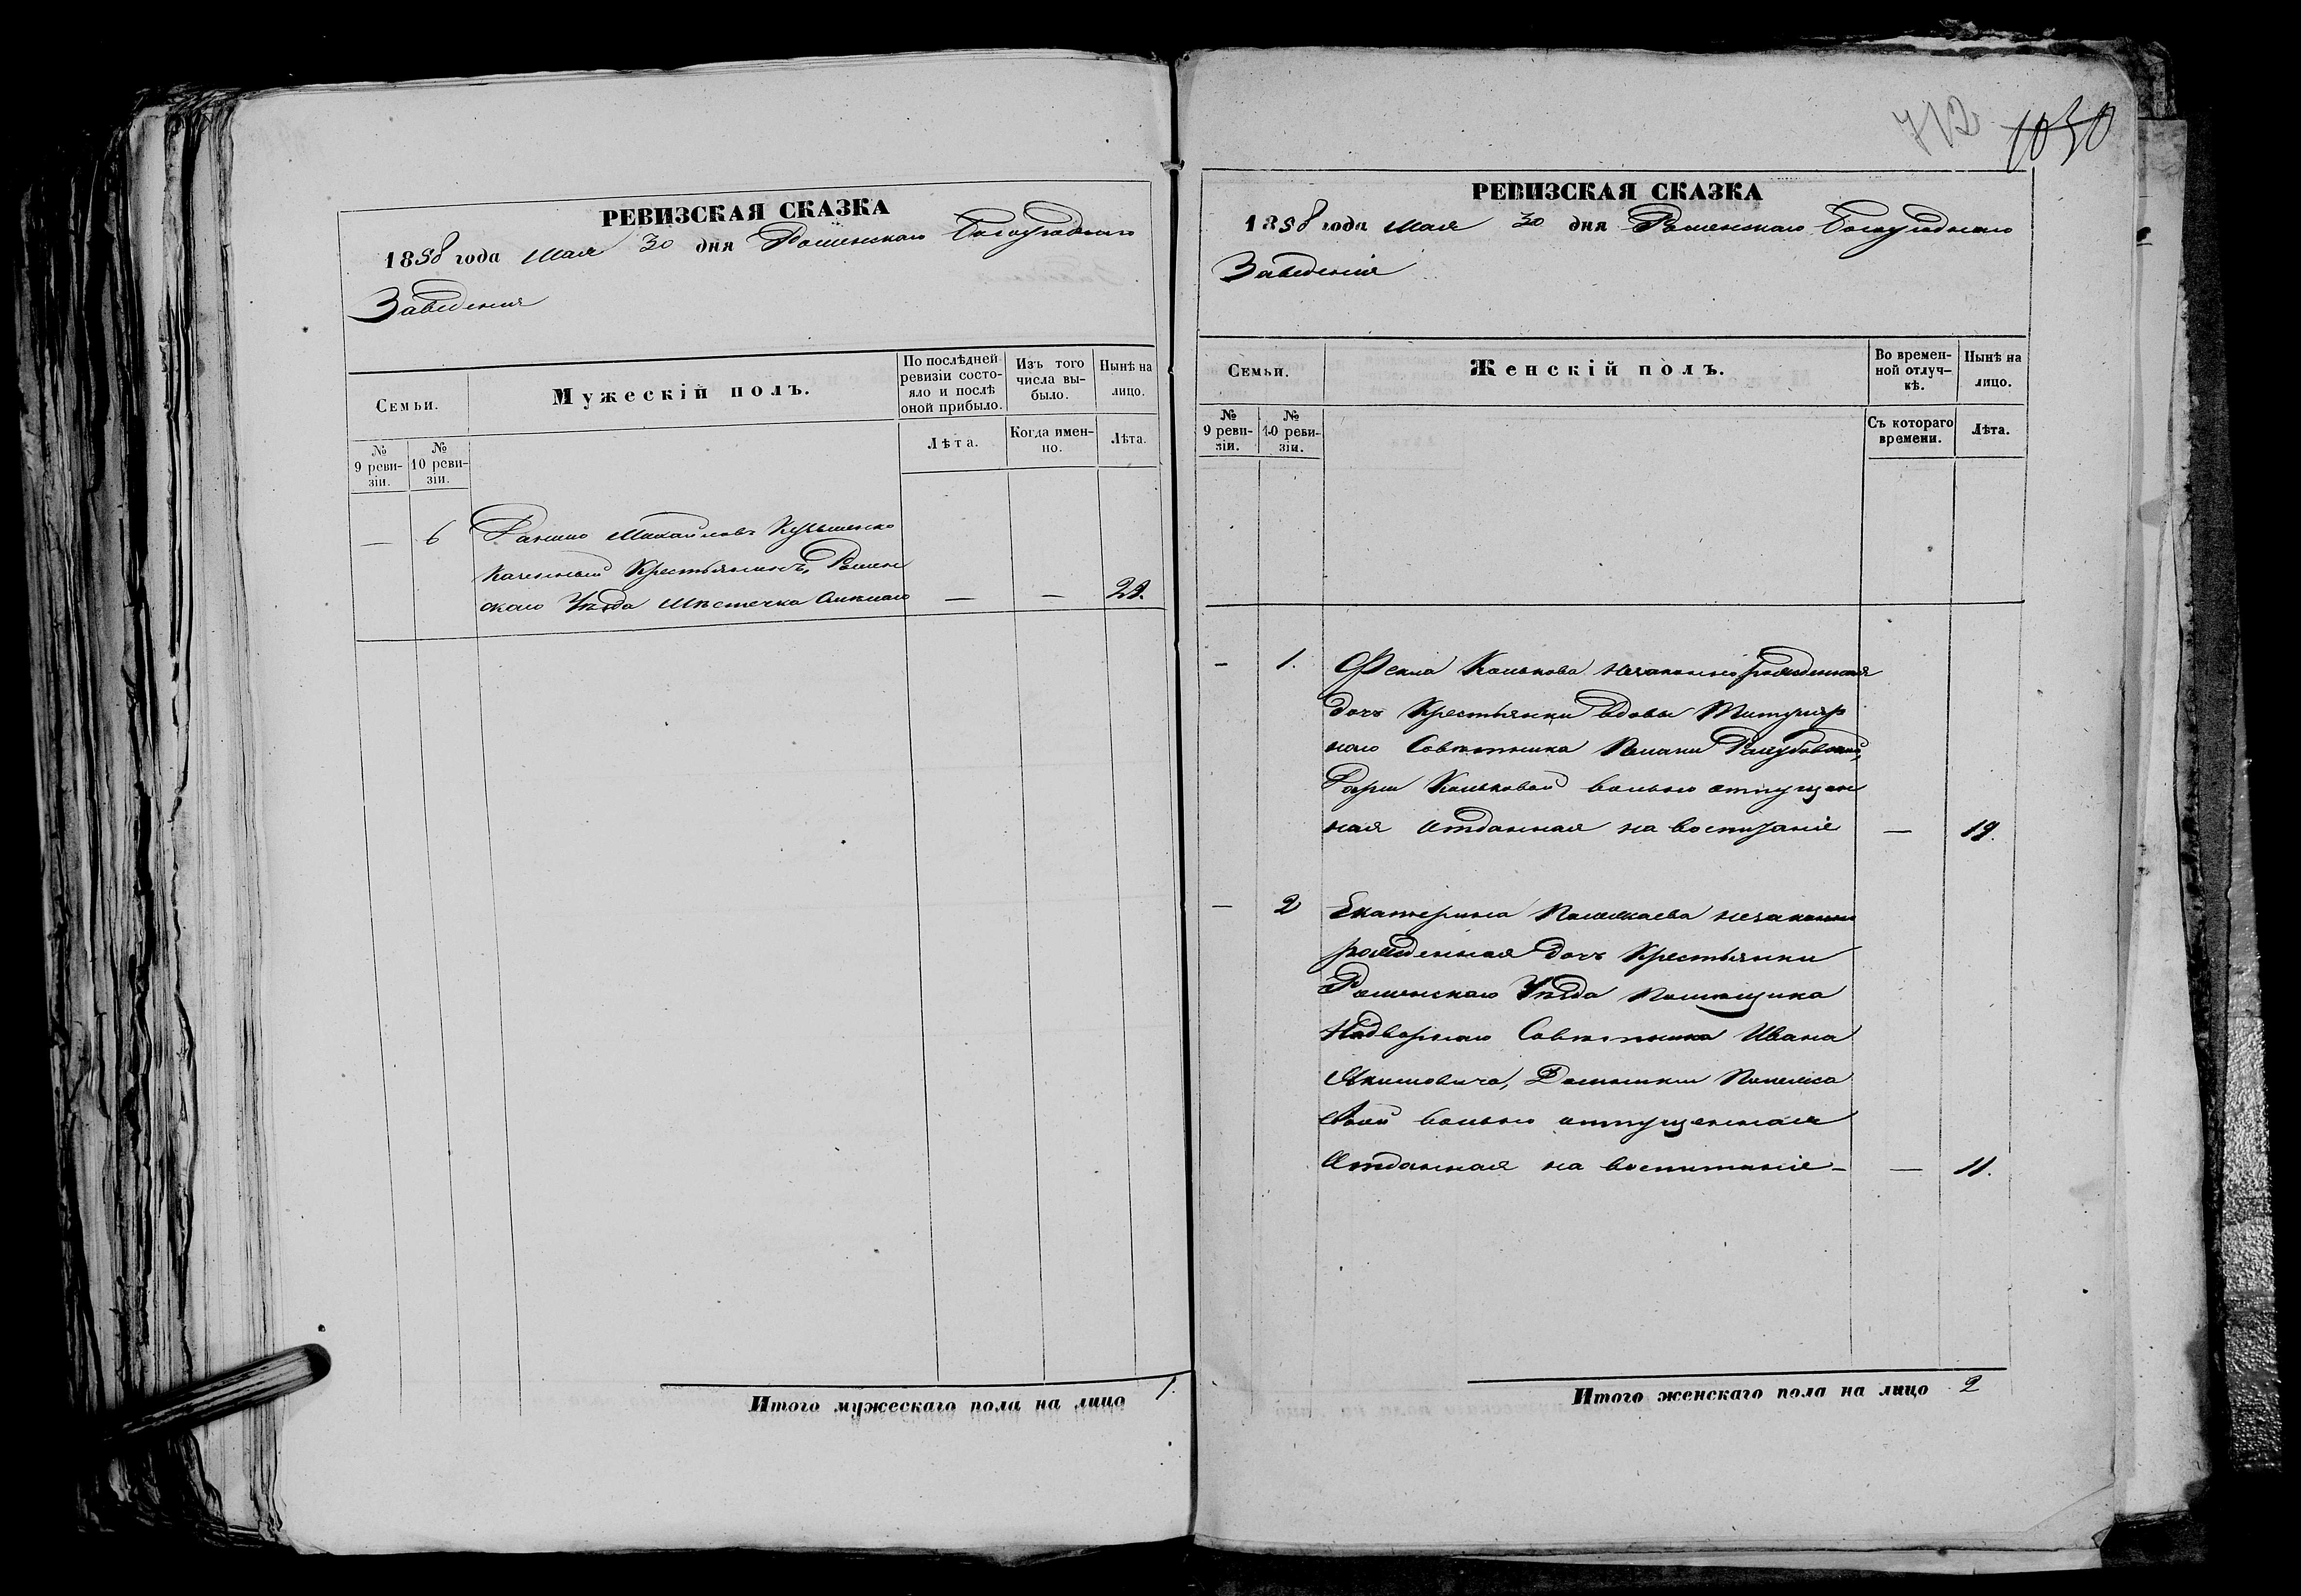 РЕВИЗСКАЯ СКАЗКА
1858 года Мая 30 дня Роменскаго Богоугоднаго
Заведения
Семьи.
Мужескій полъ.
По послѣдней ревизіи состо-
яло и послѣ
оной прибыло.
Изъ того
числа вы-
было.
Нынѣ на
лицо.
№
9 реви-
зіи.
№
10 реви-
зіи.
Лѣта.
Когда имен-
но.
Лѣта.
— 6 Михайловъ
Казенный Крестьянинъ, Ромен
скаго Уѣзда Мѣстечка — —
Итого мужескаго пола на лицо 1.
712 1050
РЕВИЗСКАЯ СКАЗКА
1858 года Мая 30 дня Роменскаго Богоугоднаго
Заведенія
Семьи.
Женскій полъ.
Во времен-
ной отлуч-
кѣ.
Нынѣ на
лицо.
№
9 реви-
зіи.
№
10 реви-
зіи.
Съ котораго
времени.
Лѣта.
— 1. Фекла Конькова незаконно рожденная
дочь Крестьянки вдовы Титуляр
наго Совѣтника
Дарьи Коньковой вольно отпущен
ная Отданная на — 19.
— 2 Екатерина незаконно
рожденная дочь Крестьянки
Роменскаго Уѣзда Помѣщика
Надворнаго Совѣтника Ивана
Якимовича,
вольно отпущенная
Отданная на воспитаніе — — 11.
Итого женскаго пола на лицо 2